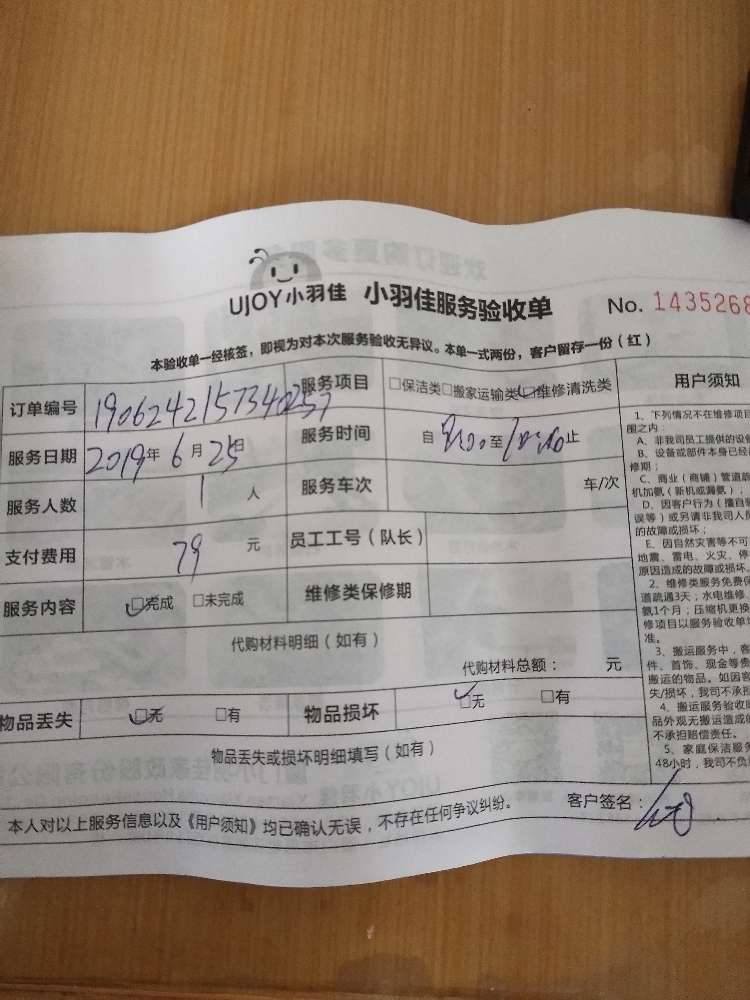 UJOY小羽佳 小羽佳服务验收单 No. 1435268
本验收单一经核签，即视为对本次服务验收无异议。本单一式两份，客户留存一份（红）
订单编号 190624215734 服务项目 □保洁类□搬家运输类□维修清洗类
服务日期 2019年 6月 25日 服务时间 自 9:00 至 10:00 止
服务人数 1 人 服务车次 车/次
支付费用 79 元 员工工号（队长）
服务内容 □完成 □未完成 维修类保修期
代购材料明细（如有）
代购材料总额： 元
物品丢失 □无 □有 物品损坏 □无 □有
物品丢失或损坏明细填写（如有）
本人对以上服务信息以及《用户须知》均已确认无误，不存在任何争议纠纷。 客户签名：
用户须知
1、下列情况不在维修项目
围之内：
A、非我司员工提供的设备
B、设备或部件本身已经
修期；
C、商业（商铺）管道疏
机加氨（新机或漏氨）；
D、因客户行为（擅自
误等）或另请非我司人员
的故障或损坏；
E、因自然灾害等不可
地震、雷电、火灾、停
原因造成的故障或损坏。
2、维修类服务免费保
道疏通3天；水电维修
氨1个月；压缩机更换
修项目以服务验收单
准。
3、搬运服务中，客
件、首饰、现金等贵
搬运的物品。如因客
失/损坏，我司不承担
4、搬运服务验收
品外观无搬运造成
不承担赔偿责任。
5、家庭保洁服务
48小时，我司不负